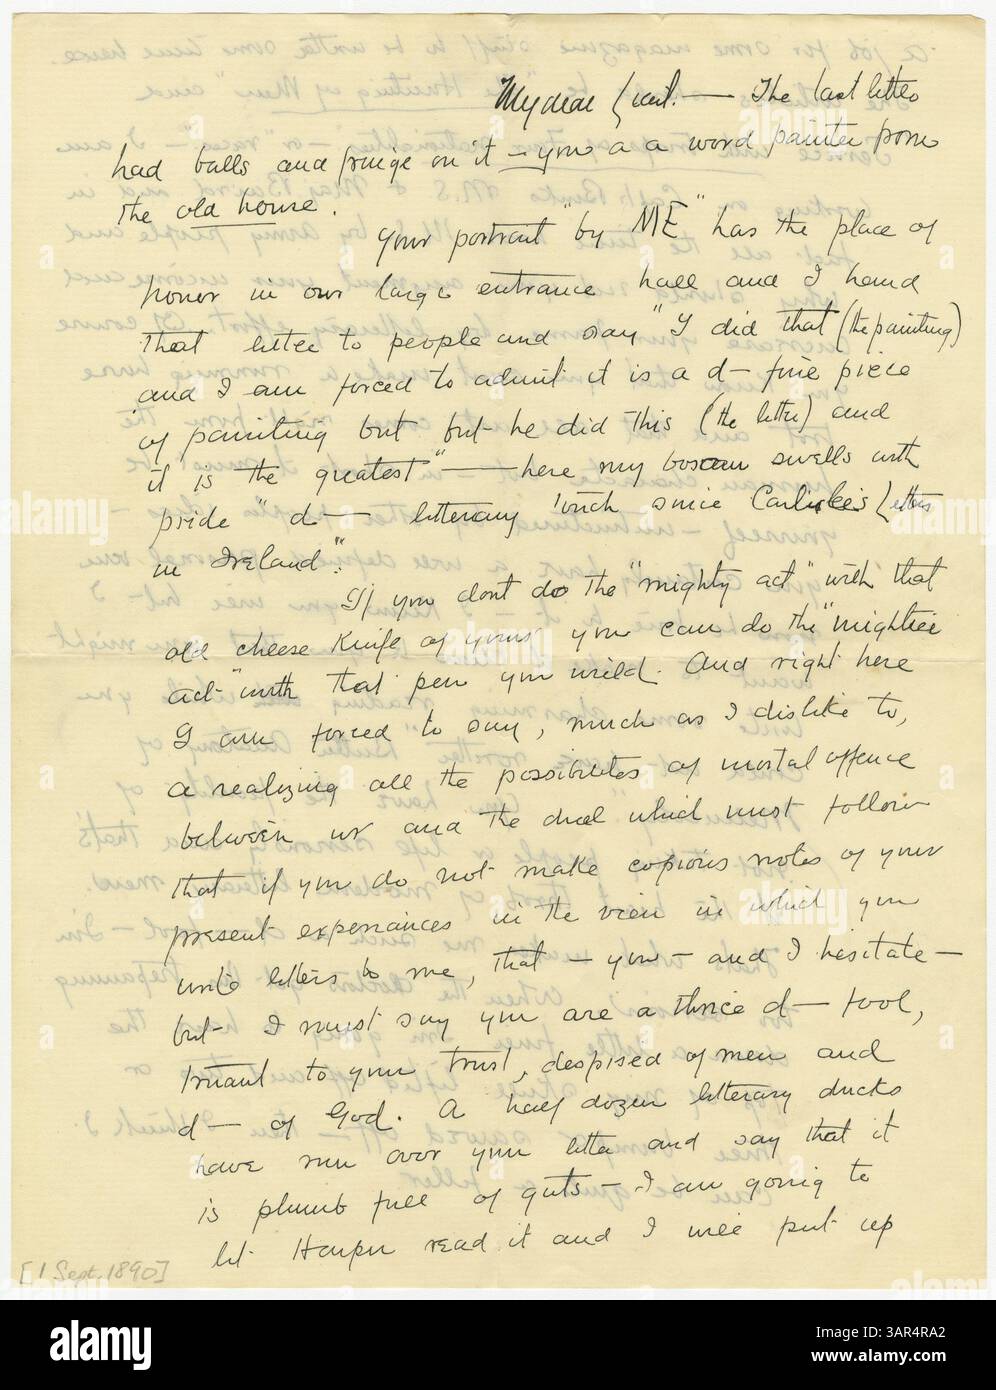 My dear Lieut. — The last letter
had balls and fringe on it — you a a word painter from
the old house.
Your portrait "by ME" has the place of
honor in our large entrance hall and I hand
that letter to people and say "I did that (the painting)
and I am forced to admit it is a d— fine piece
of painting but but he did this (the letter) and
it is the greatest" — here my bosom swells with
pride "d— literary touch since Letters
in Ireland".
If you dont do the "mighty act" with that
old cheese knife of yours you can do the "mightier
act" with that pen you wield. And right here
I am forced to say, much as I dislike to,
a realizing all the possibilites of mortal offence
between us and the duel which must follow
that if you do not make copious notes of your
present experiances in the view in which you
write letters to me, that — you — and I hesitate —
but I must say you are a thrice d— fool,
truant to your trust, despised of men and
d— of God. A half dozen literary ducks
have run over your letter and say that it
is plumb full of guts — I am going to
let Harper read it and I will put up
[1 Sept. 1890]
alamy
Image ID: 3AR4RA2
www.alamy.com